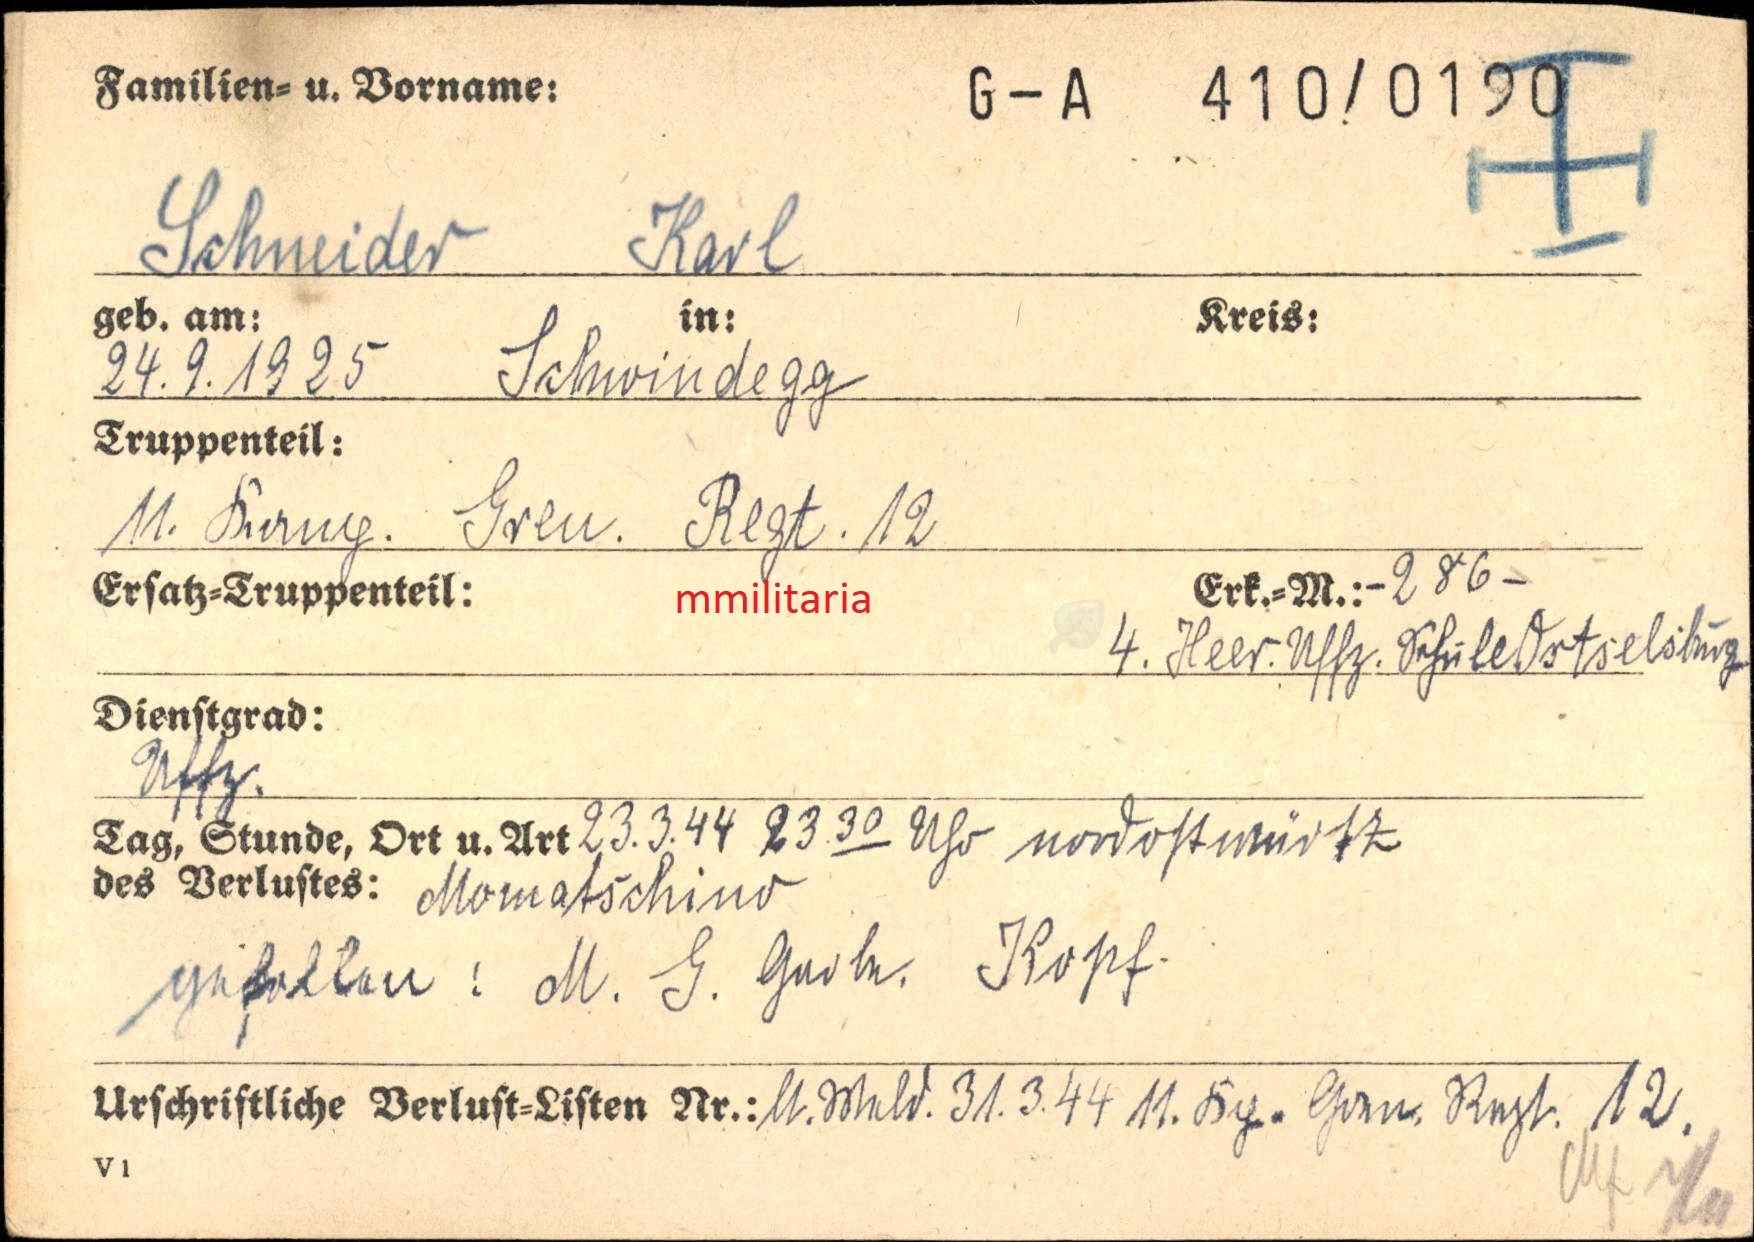 Familien- u. Vorname: G-A 410/0190
Schneider Karl
geb. am: in: Kreis:
24.9.1925 Schwindegg
Truppenteil:
11. Komp. Gren. Regt. 12
Ersatz-Truppenteil: mmilitaria Erk.-M.: -286-
4. Heer. Uffz. Schule Ortselsburg
Dienstgrad:
Uffz.
Tag, Stunde, Ort u. Art 23.3.44 23.30 Uhr nordostwärtz
des Verlustes: Momatschino
gefallen: M. G. Garbe. Kopf.
Urschriftliche Verlust-Listen Nr.: U. Meld. 31.3.44 11. Kp. Gren. Regt. 12.
V1